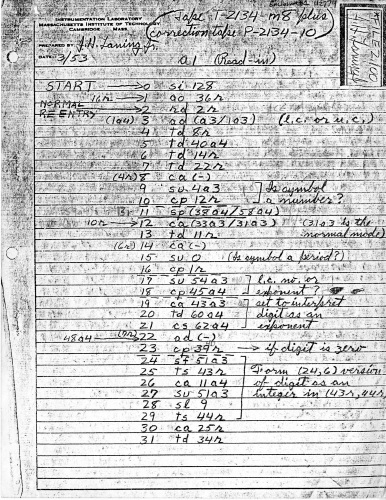 INSTRUMENTATION LABORATORY
MASSACHUSETTS INSTITUTE OF TECHNOLOGY
CAMBRIDGE MASS
Tape T-2134-m8 plus
(correction tape P-2134-10)
PREPARED BY J.H. Laning, Jr.
DATE 3/53
a1 (Read-in)
START → 0 si 128
(6r) → 1 ao 36r
NORMAL RE ENTRY → 2 rd 2r
(1a4) 3 ad (a3/1a3) (l.c. or u.c.)
4 td 8r
5 td 40a4
6 td 14r
7 td 22r
(4r) 8 ca (-)
9 su 4a3 Is symbol
10 cp 12r a number?
11 sp (38a4/58a4)
10r → 12 ca (33a3/31a3) (31a3 is the
13 td 11r normal mode)
(6r) 14 ca (-)
15 su 0 (Is symbol a period?)
16 cp 1r
17 su 54a3 l.c. no. or
18 cp 45a4 exponent?
19 ca 43a3 set to interpret
20 td 60a4 digit as an
21 cs 62a4 exponent
48a4 (7r) 22 ad (-)
23 cp 39r → if digit is zero
24 st 51a3
25 ts 43r Form (24,6) version
26 ca 11a4 of digit as an
27 su 51a3 integer in (43r, 44r)
28 sl 9
29 ts 44r
30 ca 25r
31 td 34r